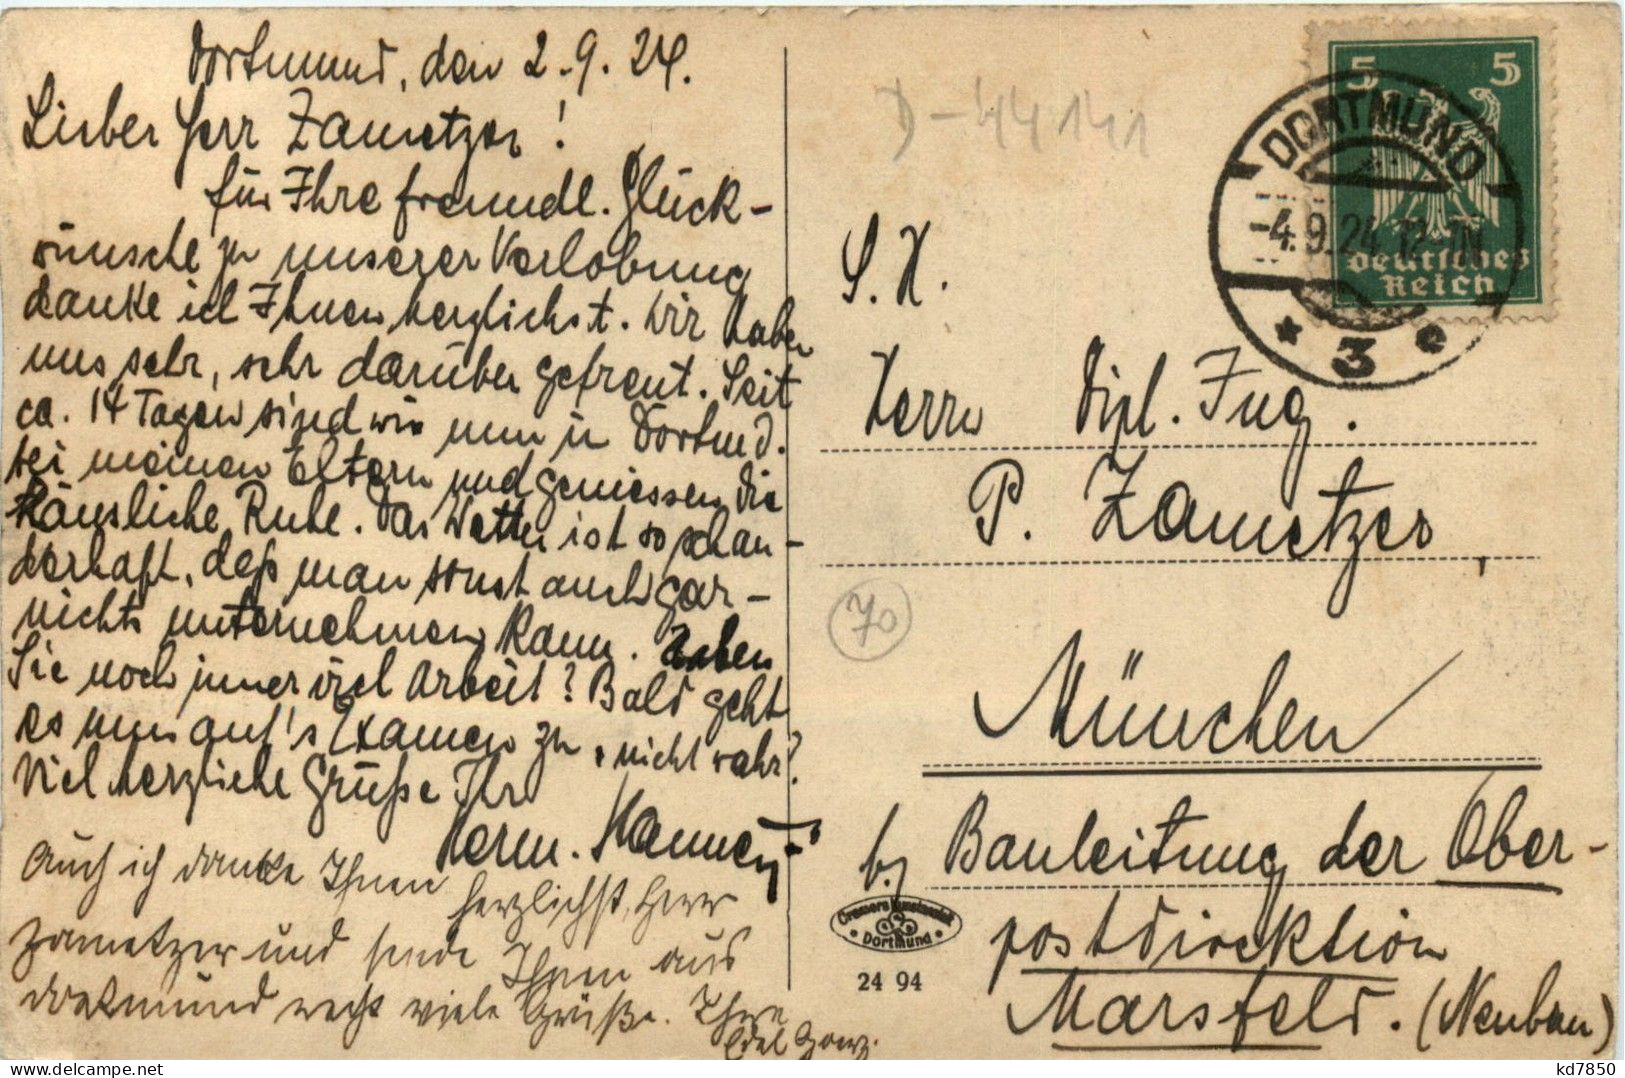 Dortmund, den 2.9.24.
Lieber Herr Zametzer!
für Ihre freundl. Glück-
wünsche zu unserer Verlobung
danke ich Ihnen herzlichst. Wir haben
uns sehr, sehr darüber gefreut. Seit
ca. 14 Tagen sind wir nun in Dortmd.
bei meinen Eltern und geniessen die
häusliche Ruhe. Das Wetter ist so schau-
derhaft, daß man sonst auch gar-
nichts unternehmen kann. Haben
Sie noch immer viel Arbeit? Bald geht
es nun auf's Examen zu, nicht wahr?
Viel herzliche Grüße Ihr
Herm.
Auch ich danke Ihnen herzlichst, Herr
Zametzer und sende Ihnen aus
Dortmund recht viele Grüße. Ihre
D-44141
S. H.
Herrn Dipl. Ing.
P. Zametzer,
70
München
b/ Bauleitung der Ober-
postdirektion
Marsfeld. (Neubau)
Cramers Kunstanstalt
Dortmund
24 94
5 5
Deutsches
Reich
DORTMUND
-4.9.24. 12-1N
* 3 e
kd7850